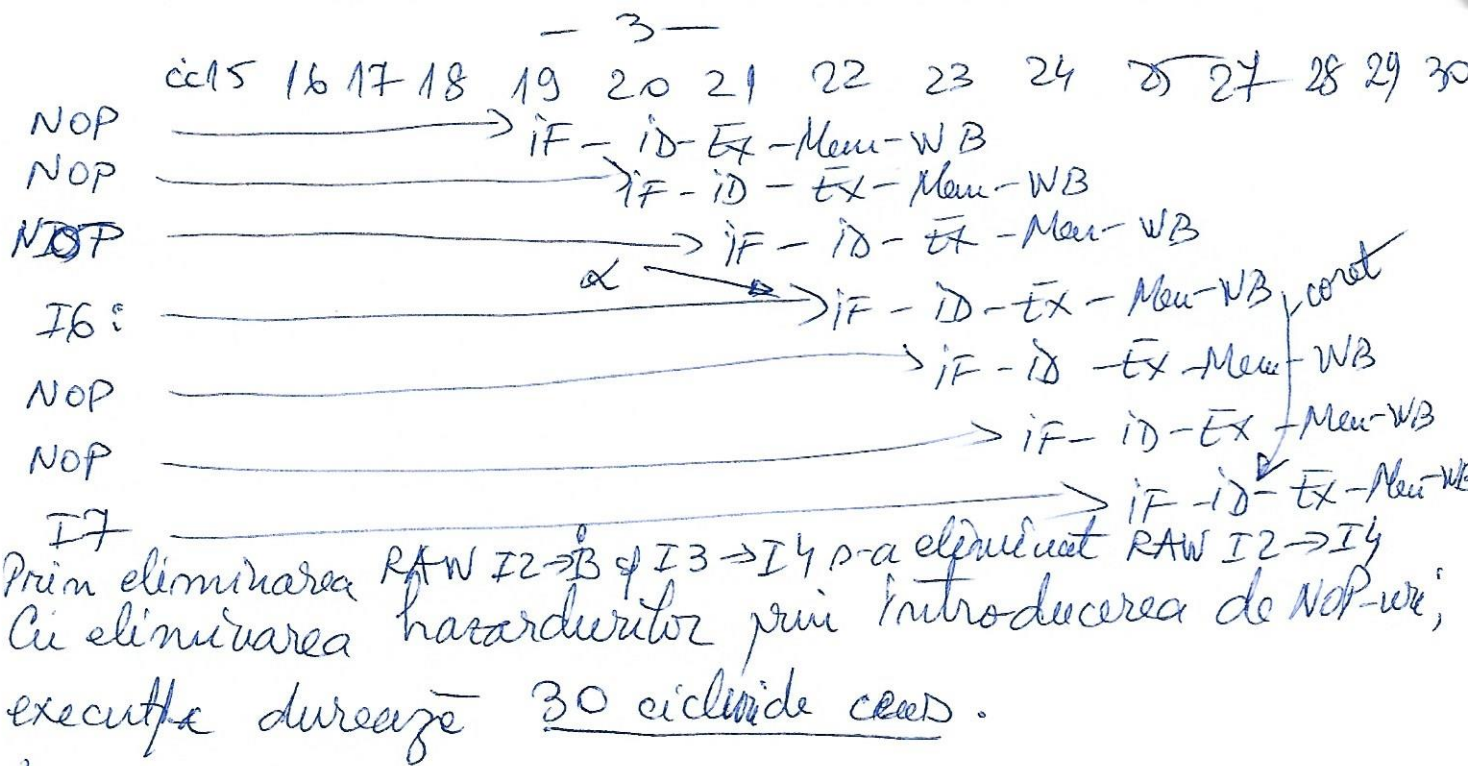 - 3 -
cc15 16 17 18 19 20 21 22 23 24 25 27 28 29 30
NOP iF - iD - Ex - Mem - WB
NOP iF - iD - Ex - Mem - WB
NOP iF - iD - Ex - Mem - WB
α
I6: iF - iD - Ex - Mem - WB, corect
NOP iF - iD - Ex - Mem - WB
NOP iF - iD - Ex - Mem - WB
I7 iF - iD - Ex - Mem - WB
Prin eliminarea RAW I2→i3 și I3→I4 s-a eliminat RAW I2→I4
Cu eliminarea hazardurilor prin introducerea de NOP-uri,
execuția durează 30 cicluri de ceas.